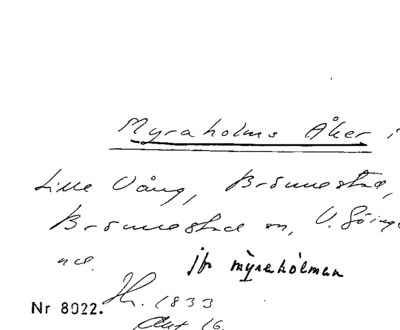 Myraholms Åker i
Lille Vång, Brönnestad,
Brönnestad sn, V. Göinge
jfr myraholman
Nr 8922. 1833
Akt 16.